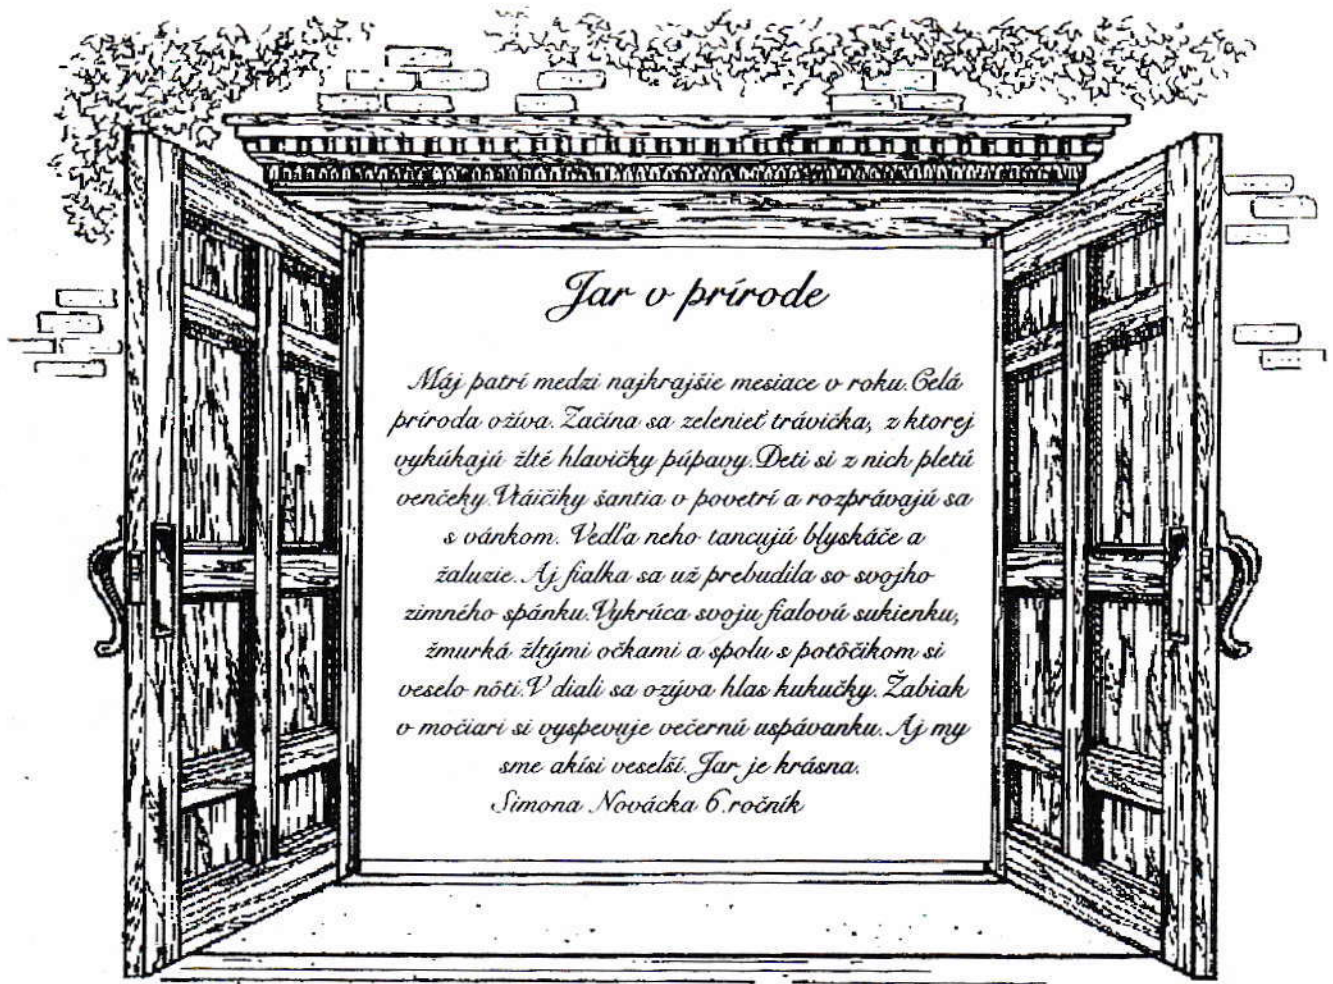 Jar v prírode
Máj patrí medzi najkrajšie mesiace v roku. Celá
príroda ožíva. Začína sa zelenieť trávička, z ktorej
vykúkajú žlté hlavičky púpavy. Deti si z nich pletú
venčeky. Vtáčiky šantia v povetrí a rozprávajú sa
s vánkom. Vedľa neho tancujú blyskáče a
žaluzie. Aj fialka sa už prebudila so svojho
zimného spánku. Vykrúca svoju fialovú sukienku,
žmurká žltými očkami a spolu s potôčikom si
veselo nôti. V diali sa ozýva hlas kukučky. Žabiak
v močiari si vyspevuje večernú uspávanku. Aj my
sme akísi veselší. Jar je krásna.
Simona Novácka 6.ročník